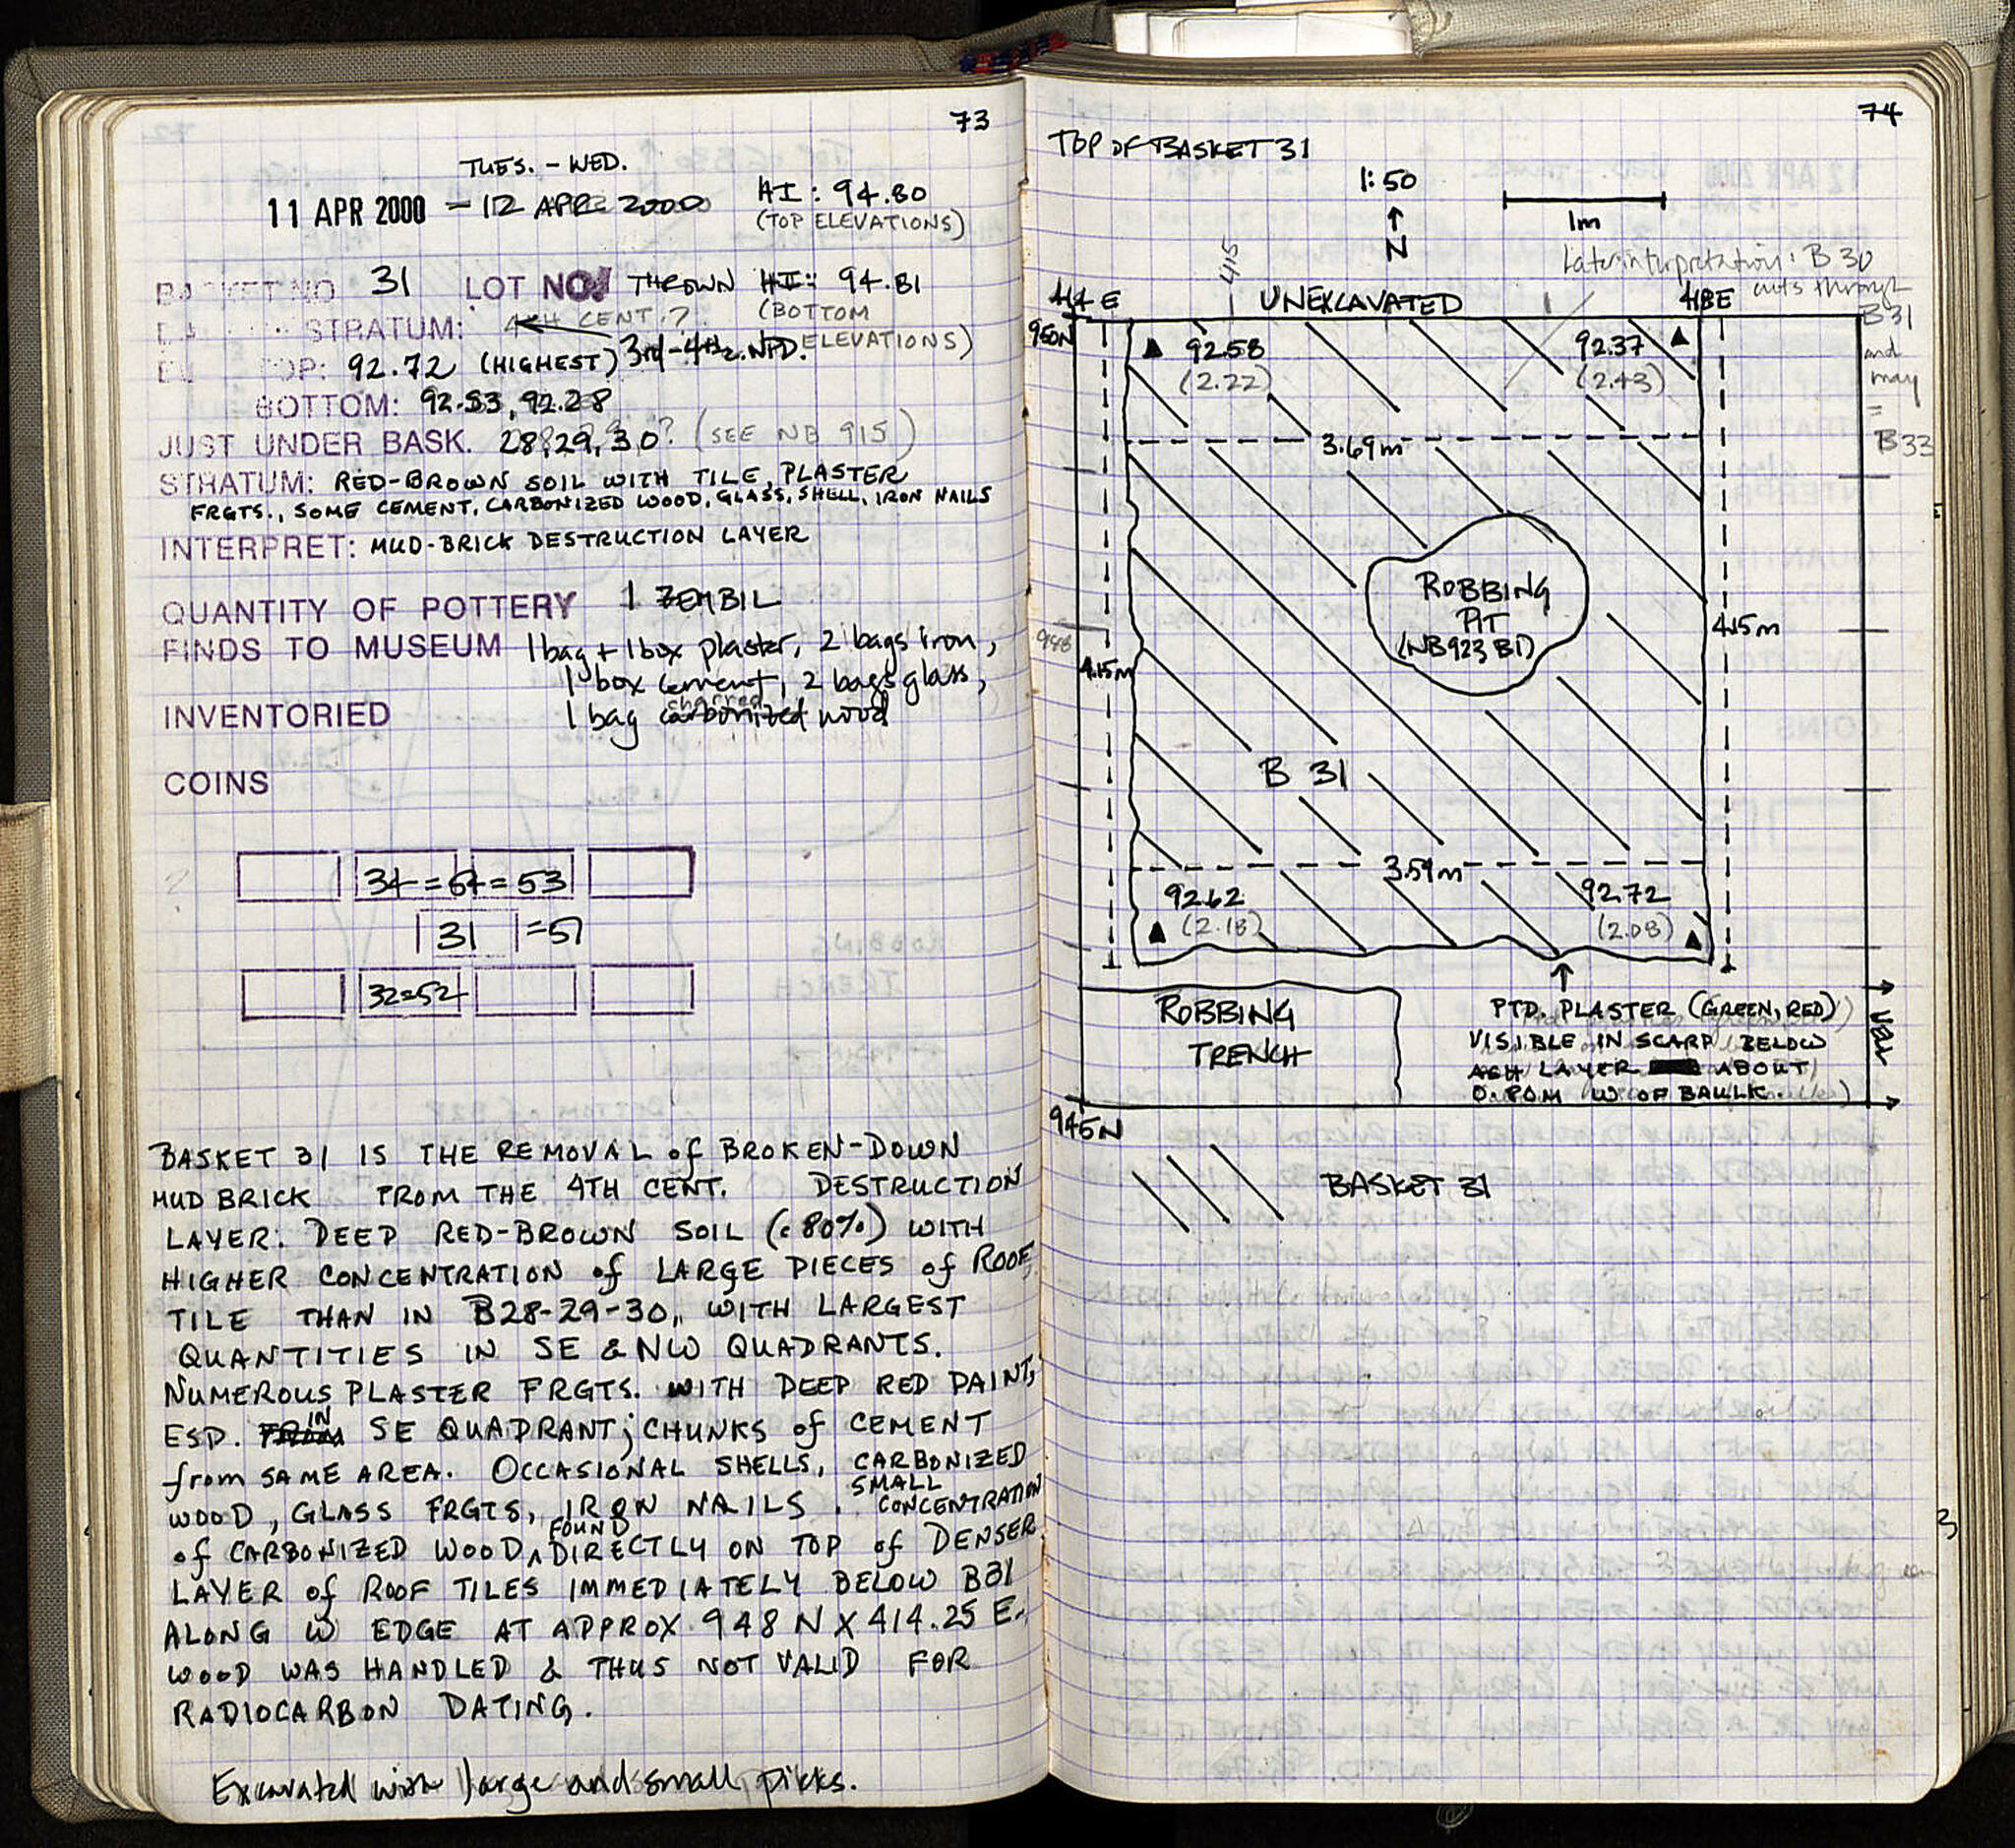 73
TUES. - WED.
11 APR 2000 - 12 APR 2000
HI: 94.80
(TOP ELEVATIONS)
BASKET NO 31 LOT NO. THROWN
HI: 94.81
(BOTTOM
ELEVATIONS)
STRATUM: 4TH CENT.?
3rd-4th c. NPD.
TOP: 92.72 (HIGHEST)
BOTTOM: 92.53, 92.28
JUST UNDER BASK. 28, 29, 30? (SEE NB 915)
STRATUM: RED-BROWN SOIL WITH TILE, PLASTER
FRGTS., SOME CEMENT, CARBONIZED WOOD, GLASS, SHELL, IRON NAILS
INTERPRET: MUD-BRICK DESTRUCTION LAYER
QUANTITY OF POTTERY 1 ZEMBIL
FINDS TO MUSEUM 1 bag + 1 box plaster, 2 bags iron,
1 box cement, 2 bags glass,
charred
1 bag carbonized wood
INVENTORIED
COINS
34 = 64 = 53
31 = 51
32=52
BASKET 31 IS THE REMOVAL of BROKEN-DOWN
MUD BRICK FROM THE 4TH CENT. DESTRUCTION
LAYER: DEEP RED-BROWN SOIL (c 80%) WITH
HIGHER CONCENTRATION of LARGE PIECES of ROOF
TILE THAN IN B28-29-30, WITH LARGEST
QUANTITIES IN SE & NW QUADRANTS.
NUMEROUS PLASTER FRGTS. WITH DEEP RED PAINT,
ESP. FROM IN SE QUADRANT; CHUNKS of CEMENT
from SAME AREA. OCCASIONAL SHELLS, CARBONIZED
WOOD, GLASS FRGTS, IRON NAILS. SMALL CONCENTRATION
of CARBONIZED WOOD FOUND DIRECTLY ON TOP of DENSER
LAYER of ROOF TILES IMMEDIATELY BELOW B31
ALONG W EDGE AT APPROX. 948 N X 414.25 E.
WOOD WAS HANDLED & THUS NOT VALID FOR
RADIOCARBON DATING.
Excavated with large and small picks.
74
TOP OF BASKET 31
1:50
N
1m
415
Later interpretation: B 30
cuts through
B31
and
may
=
B33
414 E
UNEXCAVATED
418E
950N
92.58
(2.22)
92.37
(2.43)
3.69m
ROBBING
PIT
(NB923 B1)
948
4.15m
4.15m
B 31
3.59m
92.62
(2.18)
92.72
(2.08)
ROBBING
TRENCH
PTD. PLASTER (GREEN, RED)
VISIBLE IN SCARP BELOW
ASH LAYER ABOUT
0.90M W OF BAULK.
945N
BASKET 31